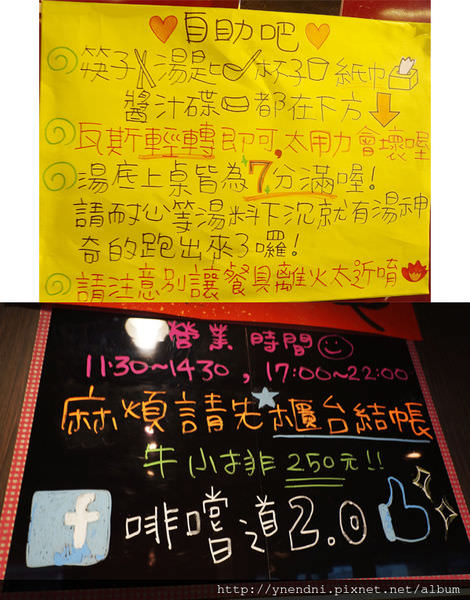 自助吧
筷子湯匙杯子紙巾
醬汁碟都在下方
瓦斯輕轉即可,太用力會壞喔
湯底上桌皆為7分滿喔!
請耐心等湯料下沉就有湯神
奇的跑出來了囉!
請注意別讓餐具離火太近唷
營業時間
11:30~14:30,17:00~22:00
麻煩請先櫃台結帳
牛小排250元!!
f 啡嚐道2.0
http://ynendni.pixnet.net/album